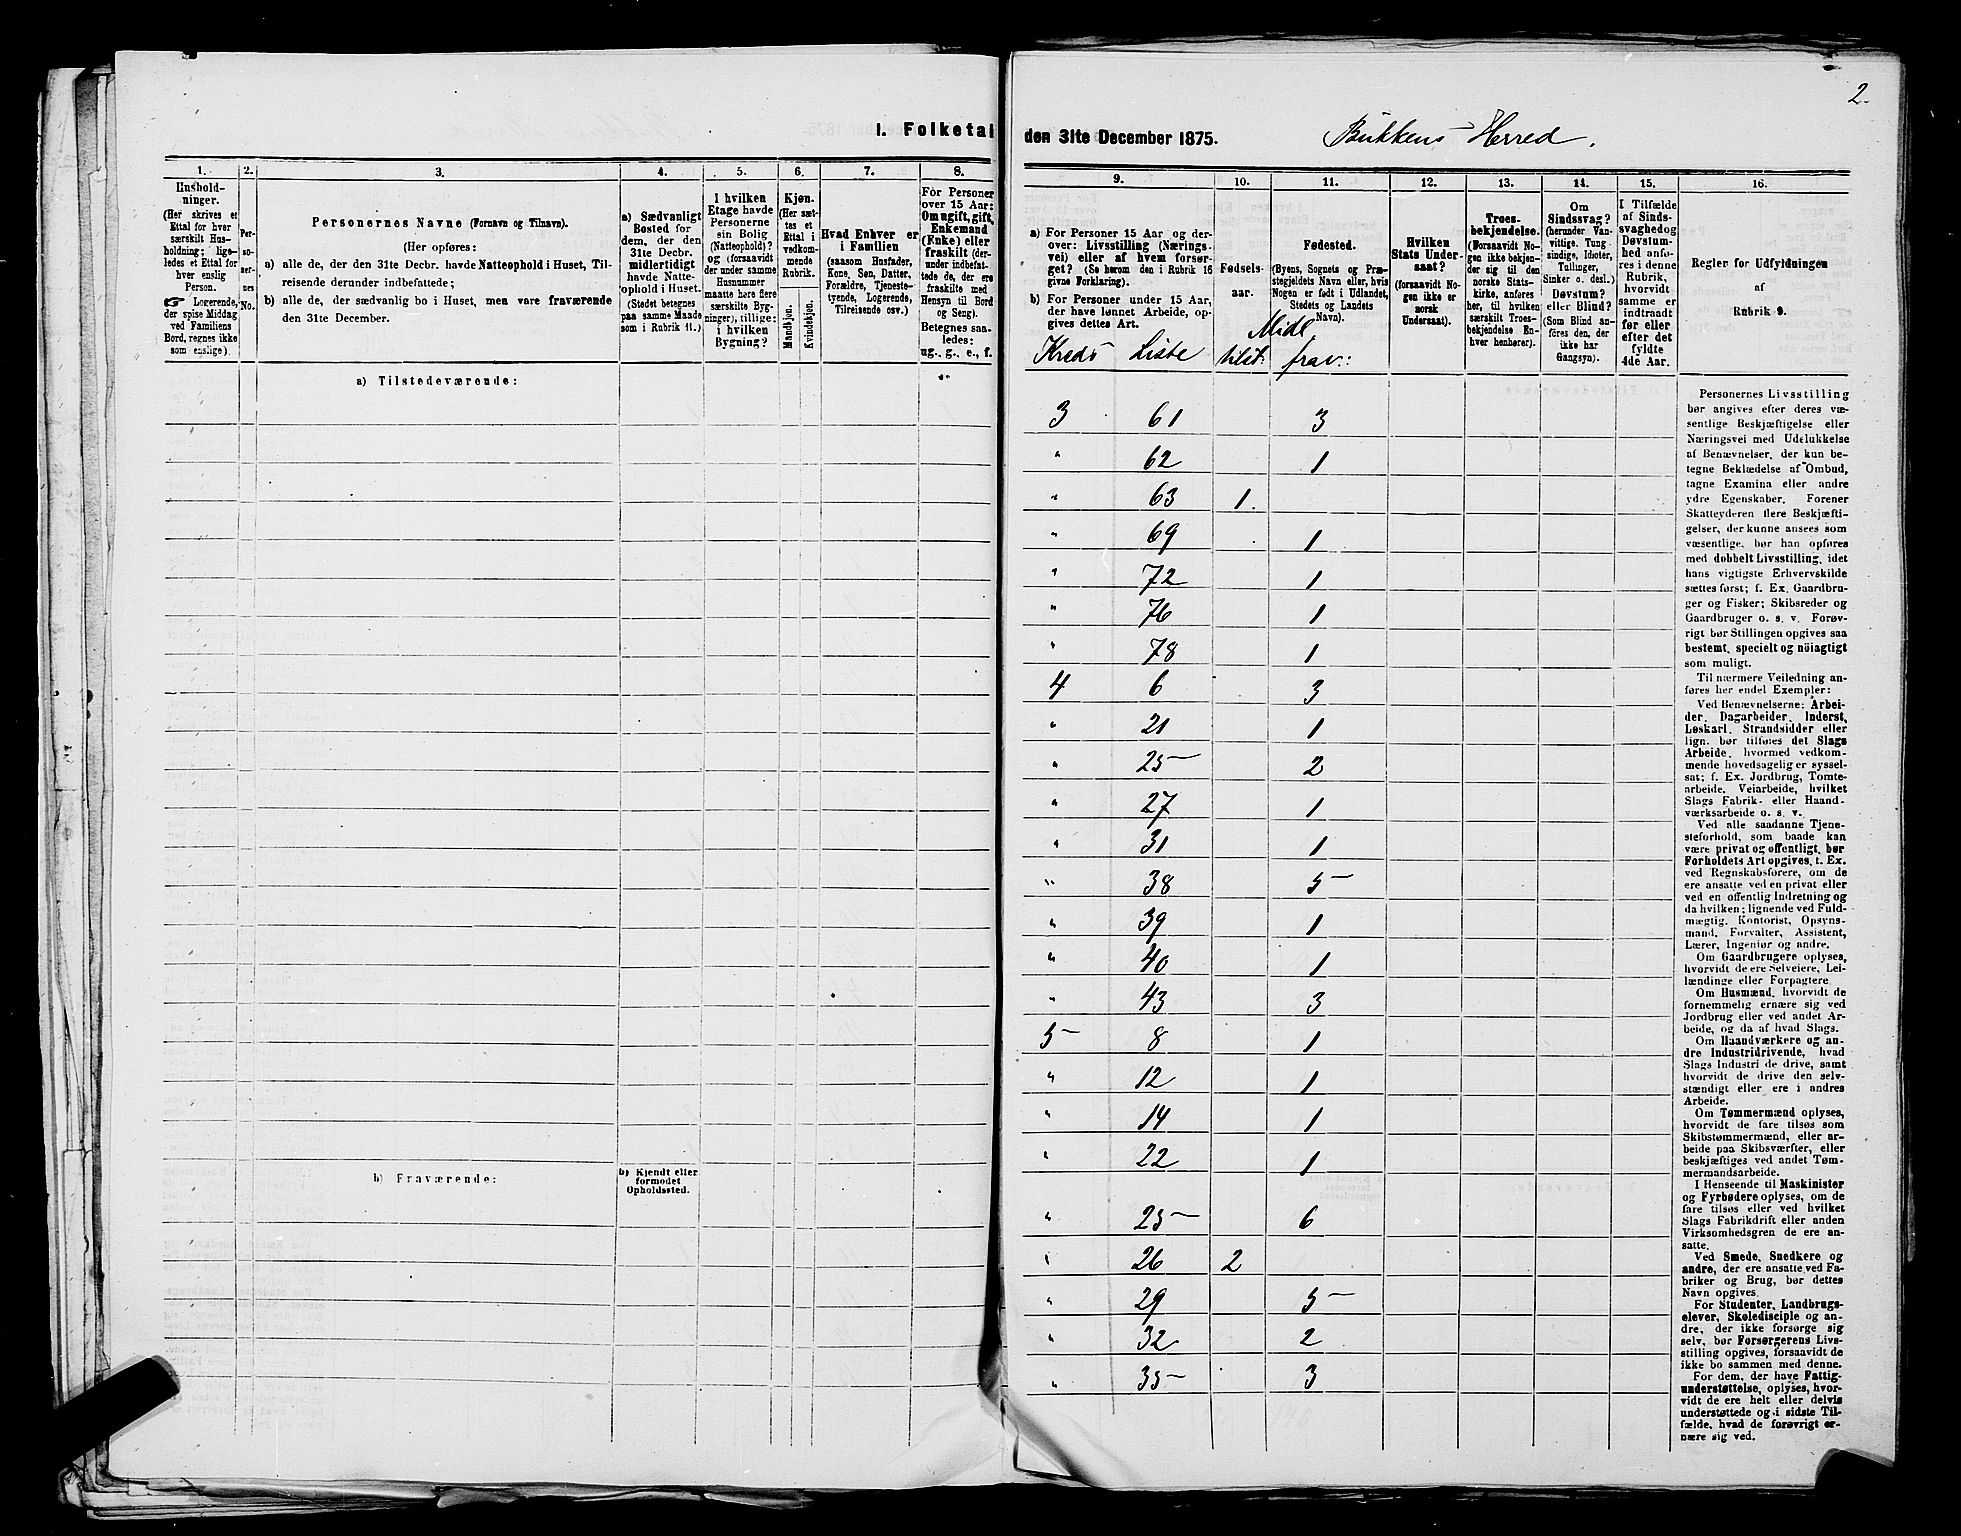 2.
I. Folketal
den 31te December 1875. Bukkens Herred.
1.
Hushold-
ninger.
(Her skrives et
Ettal for hver
særskilt Hus-
holdning; lige-
ledes et Ettal for
hver enslig
Person.
☞ Logerende,
der spise Middag
ved Familiens
Bord, regnes ikke
som enslige).
2.
Per-
so-
ner-
nes
No.
3.
Personernes Navne (Fornavn og Tilnavn).
(Her opføres:
a) alle de, der den 31te Decbr. havde Natteophold i Huset, Til-
reisende derunder indbefattede;
b) alle de, der sædvanlig bo i Huset, men vare fraværende
den 31te December.
4.
a) Sædvanligt
Bosted for
dem, der den
31te Decbr.
midlertidigt
havde Natte-
ophold i Huset.
(Stedet betegnes
paa samme Maade
som i Rubrik 11.)
5.
I hvilken
Etage havde
Personerne
sin Bolig
(Natteophold)?
og (forsaavidt
der under samme
Husnummer
maatte høre flere
særskilte Byg-
ninger), tillige:
i hvilken
Bygning?
6.
Kjøn.
(Her sæt-
tes et
Ettal i
vedkom-
mende
Rubrik.
Mandkjøn.
Kvindekjøn.
7.
Hvad Enhver er
i Familien
(saasom Husfader,
Kone, Søn, Datter,
Forældre, Tjeneste-
tyende, Logerende,
Tilreisende osv.)
8.
For Personer
over 15 Aar:
Om ugift, gift,
Enkemand
(Enke) eller
fraskilt (der-
under indbefat-
tede de, der ere
fraskilte med
Hensyn til Bord
og Seng).
Betegnes saa-
ledes:
ug., g., e., f.
a) Tilstedeværende:
b) Fraværende:
b) Kjendt eller
formodet
Opholdssted.
9.
a) For Personer 15 Aar og der-
over: Livsstilling (Nærings-
vei) eller af hvem forsør-
get? (Se herom den i Rubrik 16
givne Forklaring).
b) For Personer under 15 Aar,
der have lønnet Arbeide, op-
gives dettes Art.
10.
Fødsels-
aar.
11.
Fødested.
(Byens, Sognets og Præ-
stegjeldets Navn eller, hvis
Nogen er født i Udlandet,
Stedets og Landets
Navn).
12.
Hvilken
Stats Under-
saat?
(forsaavidt No-
gen ikke er
norsk
Undersaat).
13.
Troes-
bekjendelse.
(Forsaavidt No-
gen ikke bekjen-
der sig til den
norske Stats-
kirke, anføres
her, til hvilken
særskilt Troes-
bekjendelse En-
hver henhører).
14.
Om
Sindssvag?
(herunder Van-
vittige, Tung-
sindige, Idioter,
Tullinger,
Sinker o. desl.)
Døvstum?
eller Blind?
(Som Blind an-
føres den, der
ikke har
Gangsyn).
15.
I Tilfælde
af Sinds-
svaghed og
Døvstum-
hed anfø-
res i denne
Rubrik,
hvorvidt
samme er
indtraadt
før eller
efter det
fyldte
4de Aar.
16.
Regler for Udfyldningen
af
Rubrik 9.
Midl
Kreds Liste tilst: frav:
3 61 3
" 62 1
" 63 1.
" 69 1
" 72 1
" 76 1
" 78 1
4 6 3
" 21 1
" 25 2
" 27 1
" 31 1
" 38 5
" 39 1
" 40 1
" 43 3
5 8 1
" 12 1
" 14 1
" 22 1
" 25 6
" 26 2
" 29 5
" 32 2
" 35 3
Personernes Livsstilling
bør angives efter deres væ-
sentlige Beskjæftigelse eller
Næringsvei med Udelukkelse
af Benævnelser, der kun be-
tegne Beklædelse af Ombud,
tagne Examina eller andre
ydre Egenskaber. Forener
Skatteyderen flere Beskjæfti-
gelser, der kunne ansees som
væsentlige, bør han opføres
med dobbelt Livsstilling, idet
hans vigtigste Erhvervskilde
sættes først; f. Ex. Gaardbru-
ger og Fisker; Skibsreder og
Gaardbruger o. s. v. Forøv-
rigt bør Stillingen opgives saa
bestemt, specielt og nöiagtigt
som muligt.
Til nærmere Veiledning an-
føres her endel Exempler:
Ved Benævnelserne: Arbei-
der, Dagarbeider, Inderst,
Løskarl, Strandsidder eller
lign. bør tilføies det Slags
Arbeide, hvormed vedkom-
mende hovedsagelig er syssel-
sat; f. Ex. Jordbrug, Tomte-
arbeide, Veiarbeide, hvilket
Slags Fabrik- eller Haand-
værksarbeide o. s. v.
Ved alle saadanne Tjene-
steforhold, som baade kan
være privat og offentligt, bør
Forholdets Art opgives, t. Ex.
ved Regnskabsførere, om de
ere ansatte ved en privat eller
ved en offentlig Indretning og
da hvilken; lignende ved Fuld-
mægtig, Kontorist, Opsyns-
mand, Forvalter, Assistent,
Lærer, Ingeniør og andre.
Om Gaardbrugere oplyses,
hvorvidt de ere Selveiere, Lei-
lændinge eller Forpagtere.
Om Husmænd, hvorvidt de
fornemmelig ernære sig ved
Jordbrug eller ved andet Ar-
beide, og da af hvad Slags.
Om Haandværkere og an-
dre Industridrivende, hvad
Slags Industri de drive, samt
hvorvidt de drive den selv-
stændigt eller ere i andres
Arbeide.
Om Tømmermænd oplyses,
hvorvidt de fare tilsøs som
Skibstømmermænd, eller ar-
beide paa Skibsværfter, eller
beskjæftiges ved andet Tøm-
mermandsarbeide.
I Henseende til Maskinister
og Fyrbødere oplyses, om de
fare tilsøs eller ved hvilket
Slags Fabrikdrift eller anden
Virksomhedsgren de ere an-
satte.
Ved Smede, Snedkere og
andre, der ere ansatte ved Fa-
briker og Brug, bør dettes
Navn opgives.
For Studenter, Landbrugs-
elever, Skoledisciple og an-
dre, der ikke forsørge sig
selv, bør Forsørgerens Livs-
stilling opgives, forsaavidt de
ikke bo sammen med denne.
For dem, der have Fattig-
understøttelse, oplyses, hvor-
vidt de ere helt eller delvis
understøttede og i sidste Til-
fælde, hvad de forøvrigt er-
nære sig ved.